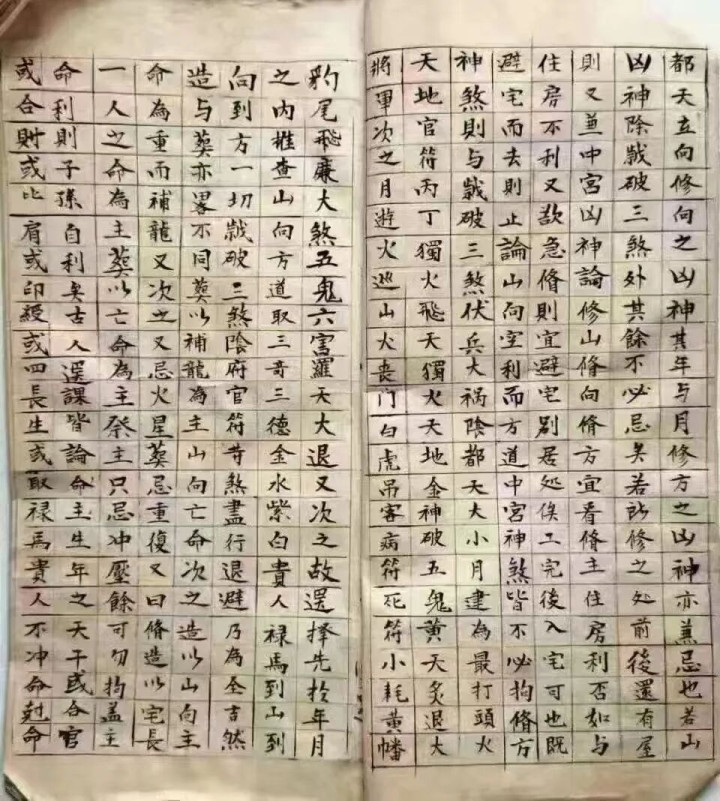 都天立向修向之凶神其年与月修方之凶神亦兼忌也若山
凶神除歲破三煞外其餘不必忌矣若所修之処前後還有屋
則又兼中宮凶神論修山脩向脩方宜看脩主住房利否如与
住房不利又欲急脩則宜避宅別居処俟工完後入宅可也既
避宅而去則止論山向空利而方道中宮神煞皆不必拘脩方
神煞則与歲破三煞伏兵大祸陰都天大小月建為最打頭火
天地官符丙丁獨火飛天獨火天地金神破五鬼黄天炙退大
將軍次之月遊火巡山火喪門白虎吊客病符死符小耗黄幡
豹尾飛廉大煞五鬼六害羅天大退又次之故選择先於年月
之内推查山向方道取三奇三德金水紫白貴人禄馬到山到
向到方一切歲破三煞陰府官符等煞盡行退避乃為全吉然
造与葬亦畧不同葬以補龍為主山向亡命次之造以山向主
命為重而補龍又次之又忌火星葬忌重復又曰脩造以宅長
一人之命為主葬以亡命為主祭主只忌冲壓餘可勿拘盖主
命利則子孫自利矣古人選課皆論命主生年之天干或合官
或合財或比肩或印綬或四長生或取禄馬貴人不冲命尅命